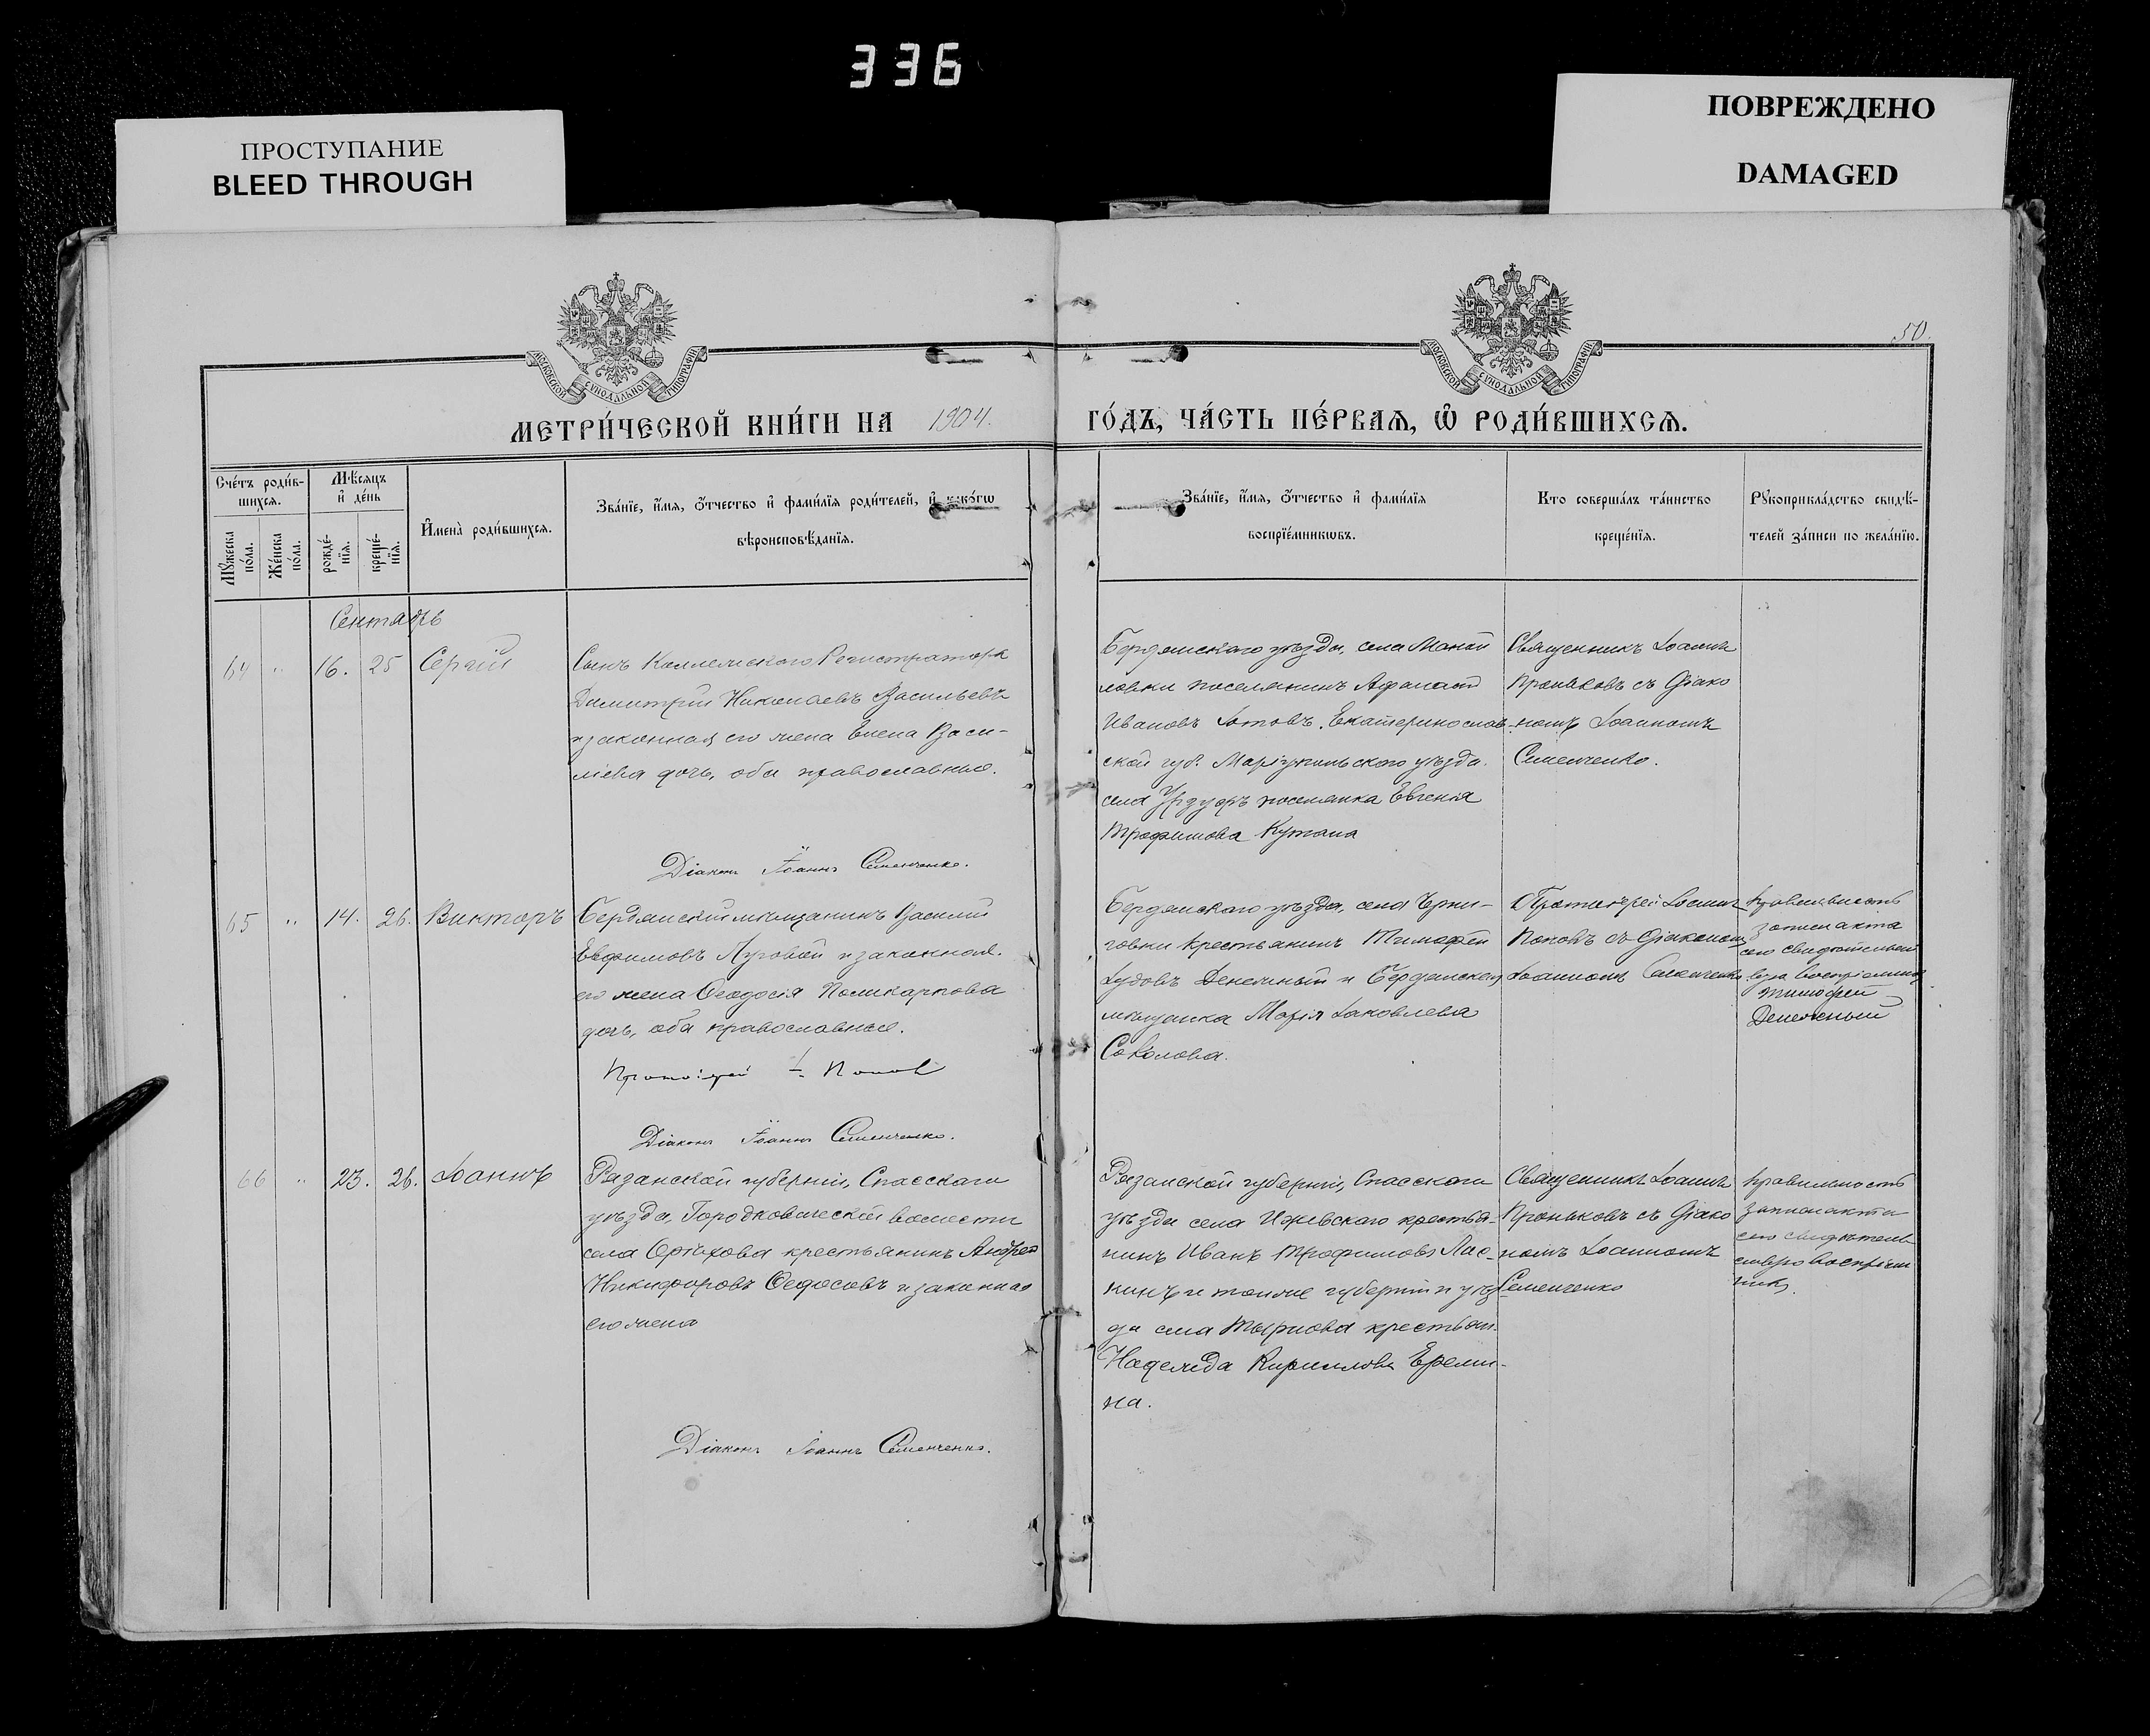 336
ПРОСТУПАНИЕ
BLEED THROUGH
ПОВРЕЖДЕНО
DAMAGED
МОСКОВСКОЙ СѴНОДАЛЬНОЙ ТИПОГРАФІИ
МОСКОВСКОЙ СѴНОДАЛЬНОЙ ТИПОГРАФІИ
50.
МЕТРИ́ЧЕСКОЙ КНИ́ГИ НА 1904.
ГО́ДЪ, ЧА́СТЬ ПЕ́РВАѦ, Ѽ РОДИ́ВШИХСѦ.
Сче́тъ роди́в-
шихсѧ.
Мѣ́сѧцъ
и҆ де́нь
Мꙋ́жеска
по́ла.
Же́нска
по́ла.
рожде́-
нїѧ.
креще́-
нїѧ.
И҆мена̀ роди́вшихсѧ.
Зва́нїе, и҆́мѧ, ѻ҆́тчество и҆ фами́лїѧ роди́телей, и҆ како́гѡ
вѣроисповѣ́данїѧ.
Зва́нїе, и҆́мѧ, ѻ҆́тчество и҆ фами́лїѧ
воспрїе́мникѡвъ.
Кто соверша́лъ та́инство
креще́нїѧ.
Рꙋкоприкла́дство свидѣ́-
телей за́писи по жела́нїю.
Сентябрь
64 " 16. 25 Сергій
Сынъ Коллежскаго Регистратора
Димитрій Николаевъ Васильевъ
и законная его жена Елена Васи-
ліева дочь, оба православные.
Діаконъ Іоаннъ Семенченко.
Бердянскаго уѣзда, села Маной
ловки поселянинъ Афанасій
Ивановъ Екатеринослав-
ской губ. Маріупольскаго уѣзда
села Урзуфъ поселянка Евгенія
Трофимова
Священникъ Іоаннъ
Проньковъ съ Діако
номъ Іоанномъ
Семенченко.
65 " 14. 26. Викторъ
Бердянскій мѣщанинъ Василій
Евфимовъ Луговой и законная
его жена Ѳеодосія Поликарпова
дочь, оба православные.
Протоіерей І. Поповъ
Діаконъ Іоаннъ Семенченко.
Бердянскаго уѣзда, села Черни-
говки крестьянинъ Тимофей
Денежный и Бердянская
мѣщанка Марія Іаковлева
Соколова.
Протоіерей Іоаннъ
Поповъ съ Діакономъ
Іоанномъ Семенченко
Правильность
записи акта
сего
Тимофей
Денежный
66 " 23. 26. Іоаннъ
Рязанской губерніи, Спасскаго
уѣзда, Городковической волости
села Орѣхова крестьянинъ Андрей
Никифоровъ Ѳедосовъ и законная
его жена
Діаконъ Іоаннъ Семенченко.
Рязанской губерніи, Спасскаго
уѣзда села Ижевскаго крестья-
нинъ Иванъ Трофимовъ
и тойже губерніи и уѣз
да села Тырнова крестьян.
Надежда Кириллова Ереми-
на.
Священникъ Іоаннъ
Проньковъ съ Діако
номъ Іоанномъ
Семенченко
Правильность
записи акта
сего